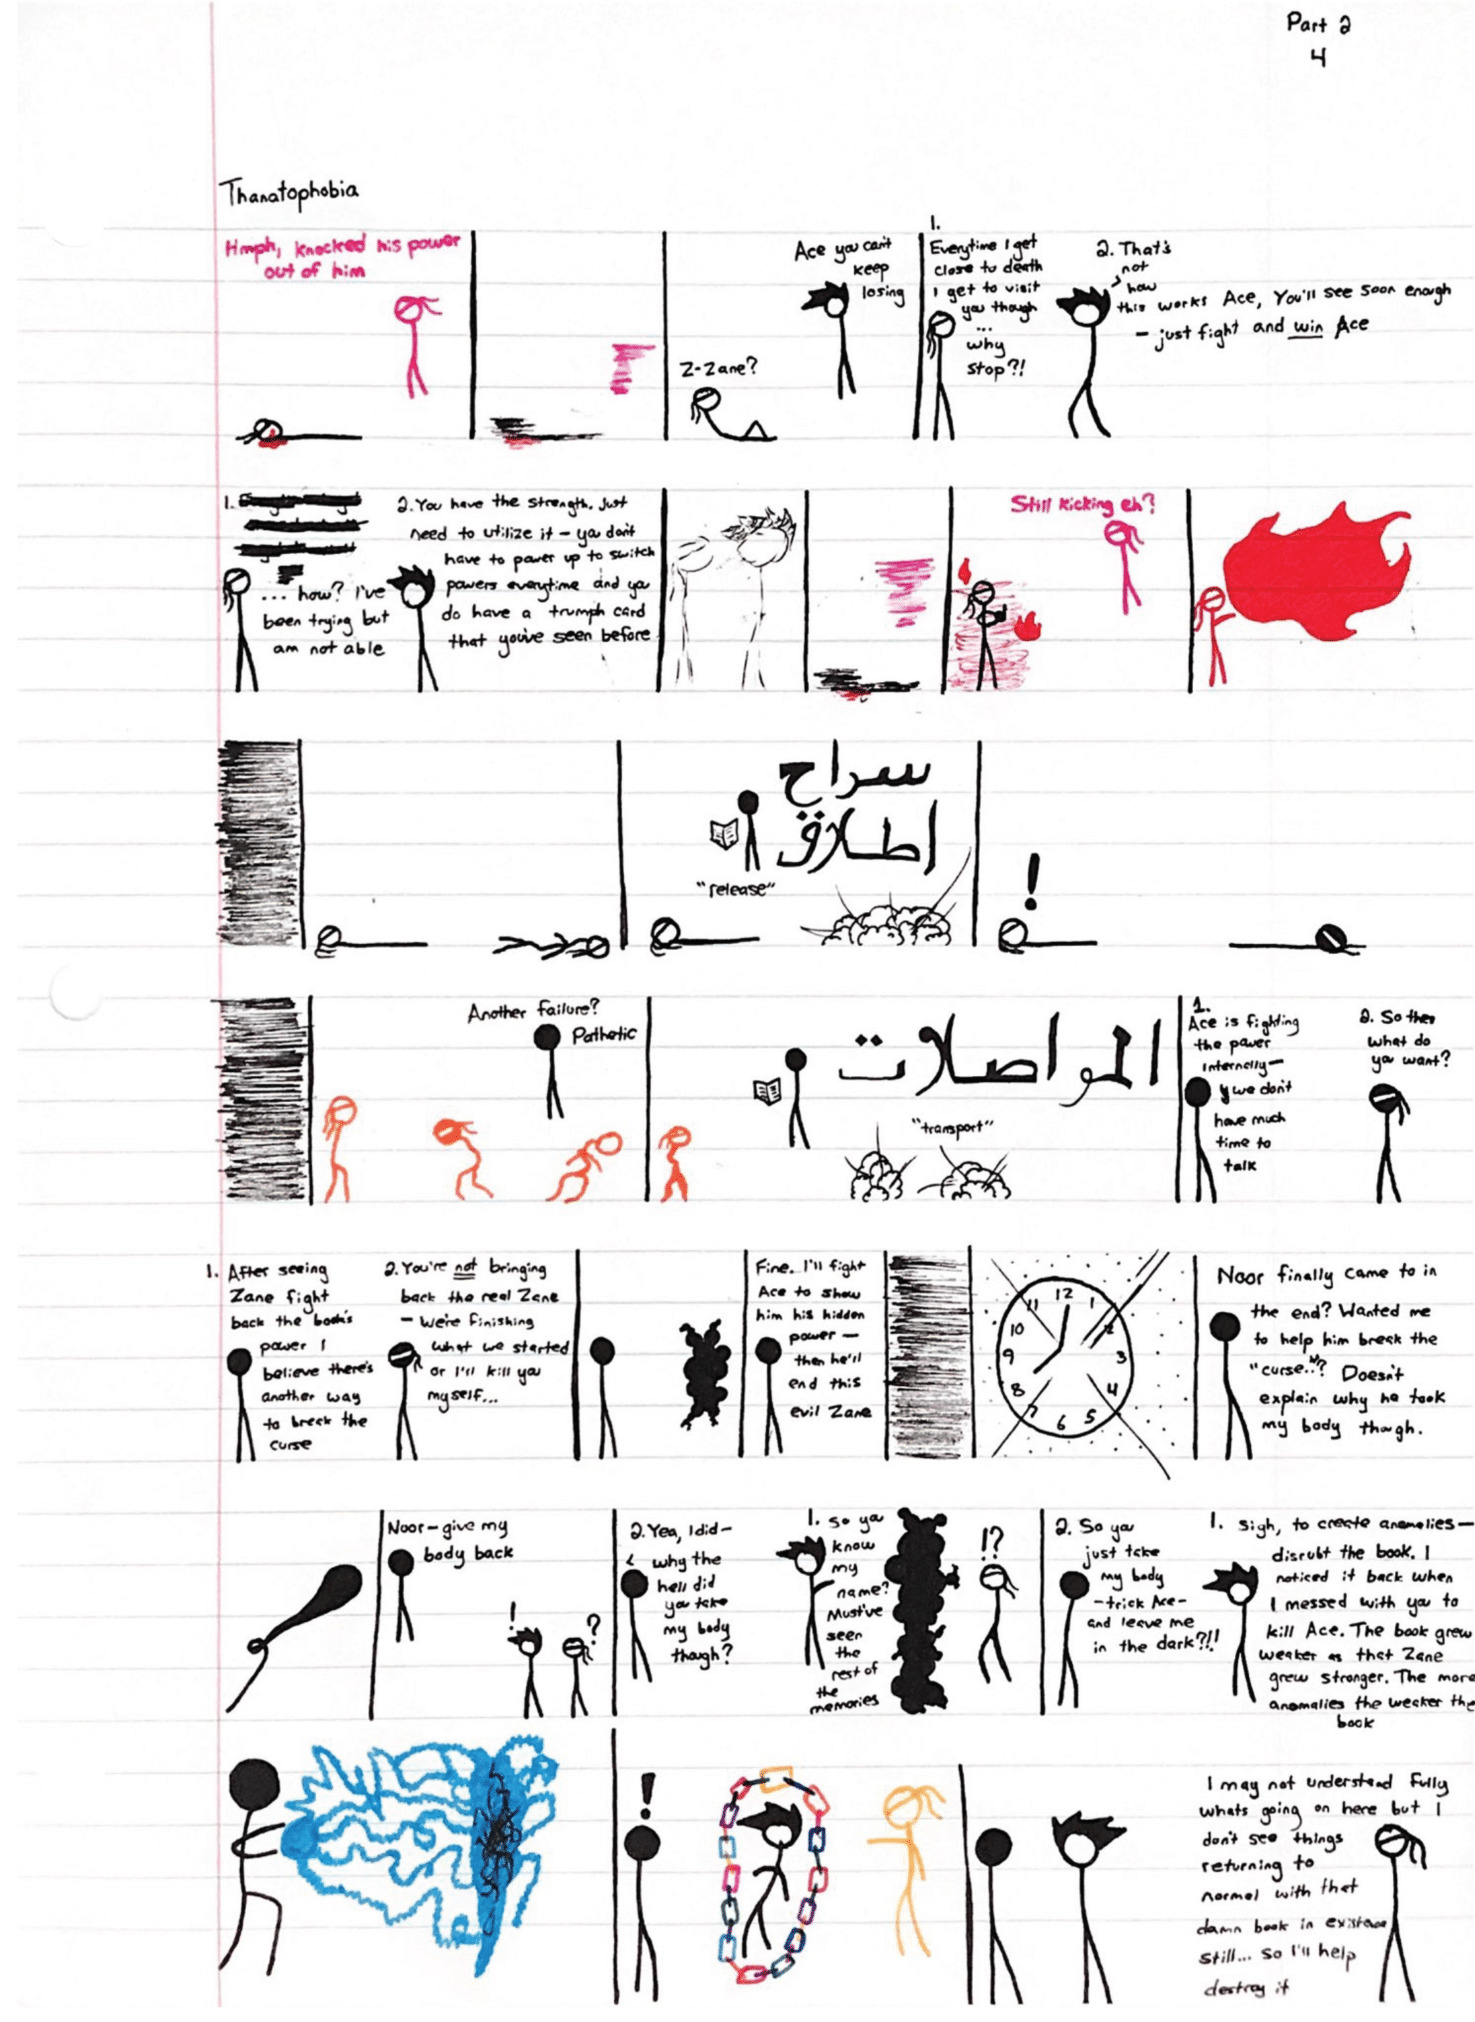 Part 2
4
Thanatophobia
Hmph, knocked his power
out of him
Z-Zane?
Ace you can't
keep
losing
1.
Everytime I get
close to death
I get to visit
you though
...
why
stop?!
2. That's
not
how
this works Ace, You'll see soon enough
- just fight and win Ace
1.
... how? I've
been trying but
am not able
2. You have the strength. Just
need to utilize it - ya don't
have to power up to switch
powers everytime and ya
do have a trumph card
that you've seen before
Still kicking eh?
سراح
اطلاق
"release"
!
Another failure?
Pathetic
المواصلات
"transport"
1.
Ace is fighting
the power
internally-
y we don't
have much
time to
talk
2. So then
what do
you want?
1. After seeing
Zane fight
back the book's
power I
believe there's
another way
to break the
curse
2. You're not bringing
back the real Zane
- we're finishing
what we started
or I'll kill you
myself...
Fine. I'll fight
Ace to show
him his hidden
power -
then he'll
end this
evil Zane
11 12 1
10 2
9 3
8 4
7 6 5
Noor finally came to in
the end? Wanted me
to help him break the
"curse.."? Doesn't
explain why he took
my body though.
Noor - give my
body back
!
?
2. Yea, I did -
why the
hell did
you take
my body
though?
1. So ya
know
my
name?
Must've
seen
the
rest of
the
memories
!?
2. So ya
just take
my body
- trick Ace -
and leave me
in the dark?!!
1. Sigh, to create anomalies -
disrubt the book. I
noticed it back when
I messed with ya to
kill Ace. The book grew
weaker as that Zane
grew stronger. The more
anomalies the weaker the
book
!
I may not understand fully
whats going on here but I
don't see things
returning to
normal with that
damn book in existence
still... So I'll help
destroy it